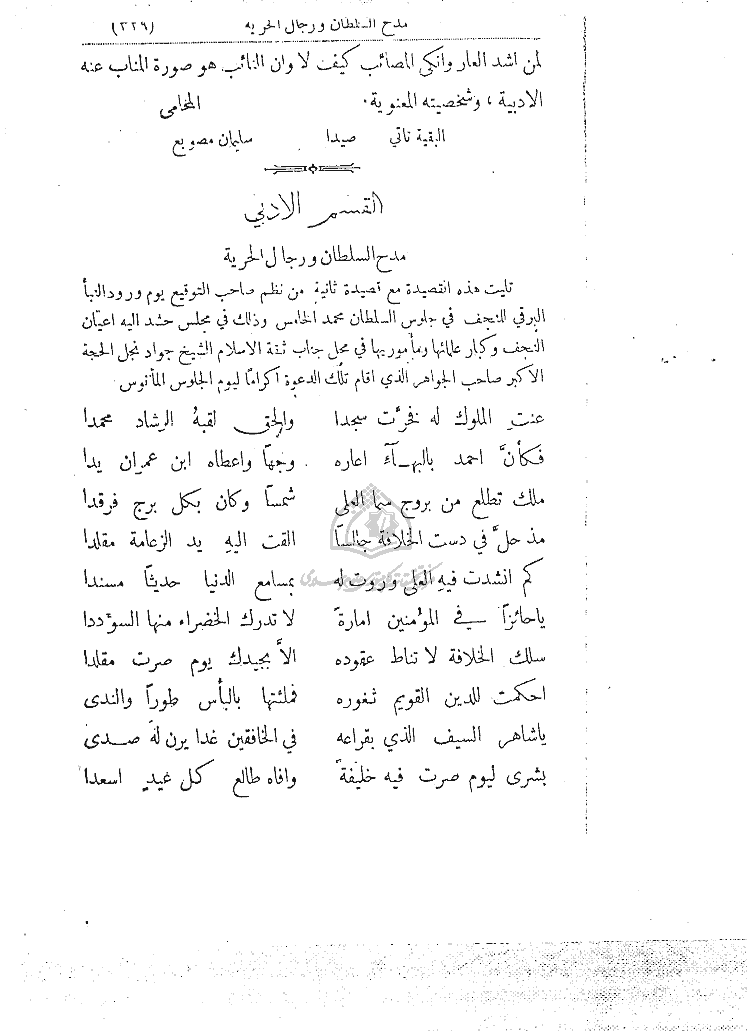 مدح السلطان ورجال الحرية (٣٢٩)
لمن اشد العار وانكى المصائب كيف لا وان النائب هو صورة المناب عنه
الادبية ، وشخصيته المعنوية. المحامى
البقية تاتي صيدا سليمان مصوبع
القسم الادبي
مدح السلطان ورجال الحرية
تليت هذه القصيدة مع قصيدة ثانية من نظم صاحب التوقيع يوم ورود النبأ
البرقي للنجف في جلوس السلطان محمد الخامس وذلك في مجلس حشد اليه اعيان
النجف وكبار علمائها ومأموريها في محل جناب ثقة الاسلام الشيخ جواد نجل الحجة
الاكبر صاحب الجواهر الذي اقام تلك الدعوة اكرامًا ليوم الجلوس المأنوس
عنتِ الملوك له فخرَّت سجدا والحق لقبهُ الرشاد محمدا
فكأنَّ احمد بالبهـآءَ اعاره وجهًا واعطاه ابن عمران يدا
ملك تطلع من بروج سما العلى شمسًا وكان بكل برج فرقدا
مذ حلَّ في دست الخلافة جالسًا القت اليهِ يد الزعامة مقلدا
كم انشدت فيهِ العلى وروت له بمسامع الدنيا حديثًا مسندا
ياحائزًا في المؤمنين امارةً لا تدرك الخضراء منها السؤددا
سلك الخلافة لا تناط عقوده الاَّ بجيدك يوم صرت مقلدا
احكمت للدين القويم ثغوره فملئتها بالبأس طورًا والندى
ياشاهر السيف الذي بقراعه في الخافقين غدا يرن لهُ صدى
بشرى ليوم صرت فيه خليفةً وافاه طالع كل عيدٍ اسعدا